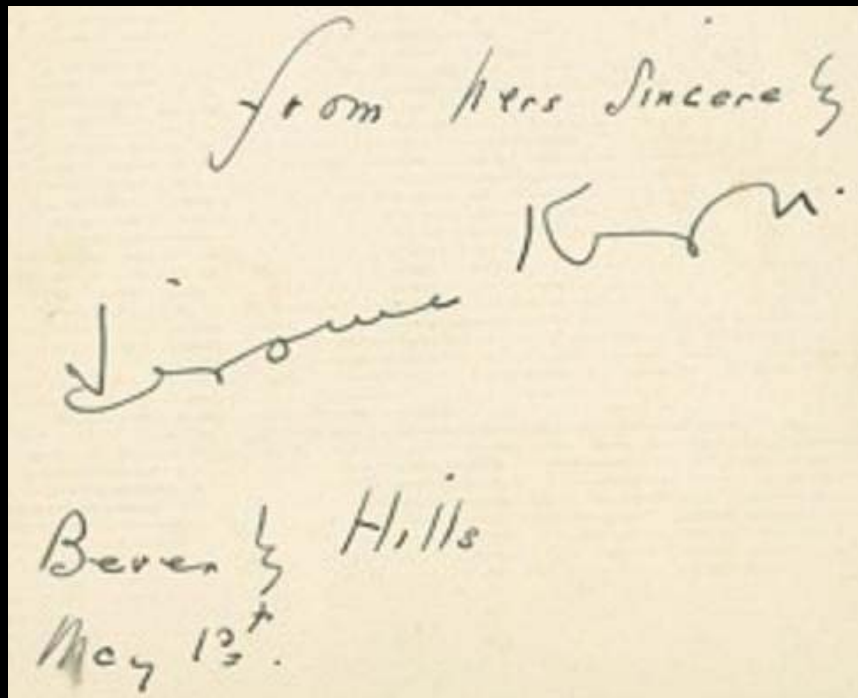 from hers Sincerely
Jerome Kern.
Beverly Hills
May 13t.